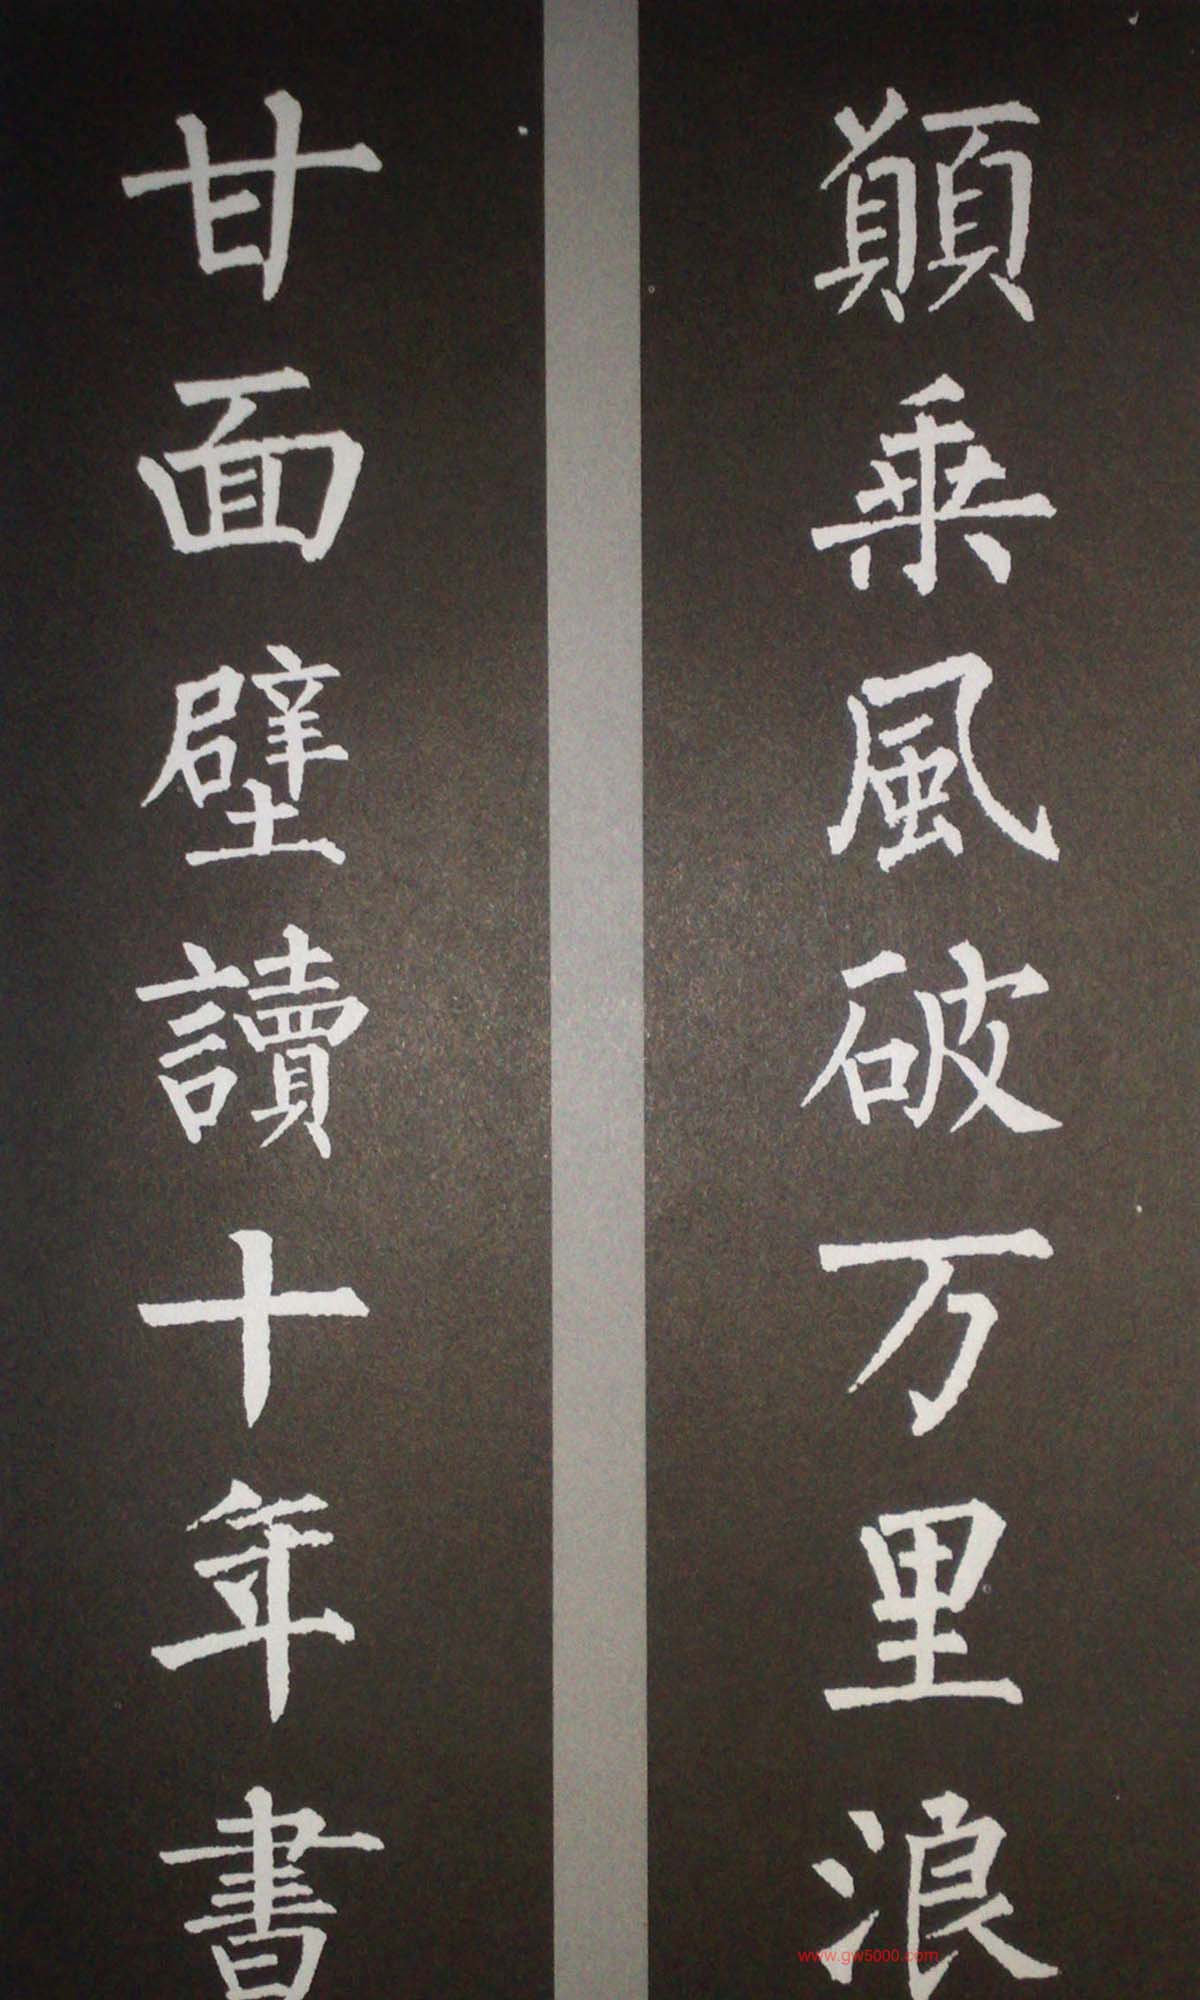 顚乗風破万里浪
甘面壁讀十年書
www.gw5000.com